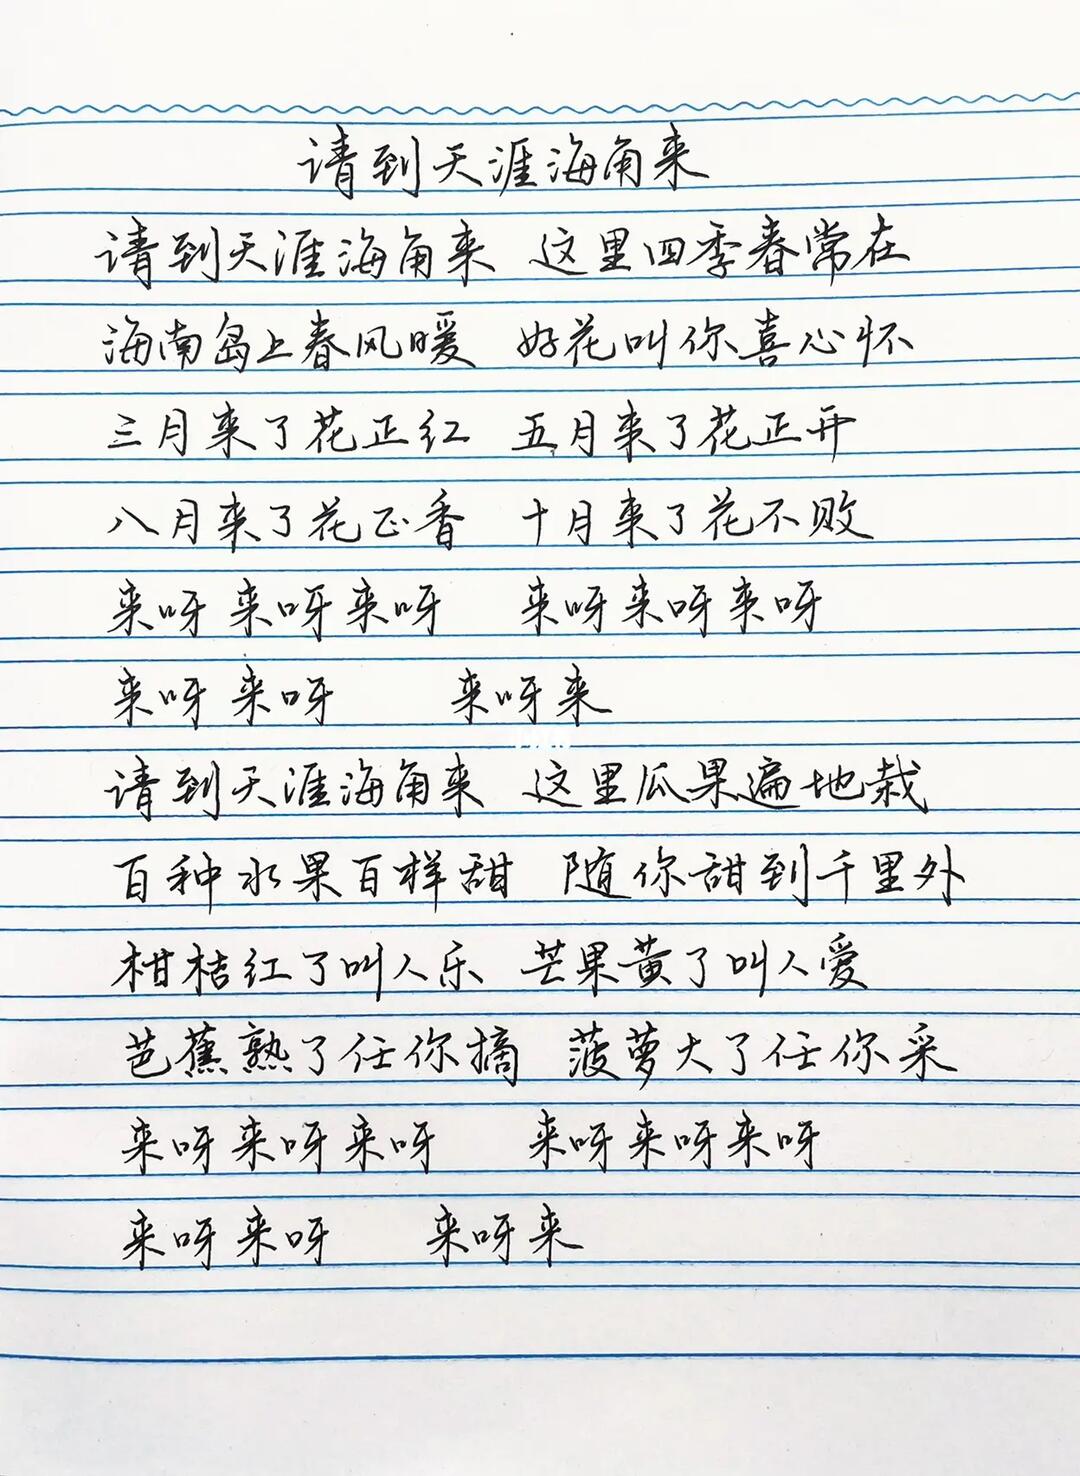 请到天涯海角来
请到天涯海角来 这里四季春常在
海南岛上春风暖 好花叫你喜心怀
三月来了花正红 五月来了花正开
八月来了花正香 十月来了花不败
来呀来呀来呀 来呀来呀来呀
来呀来呀 来呀来
请到天涯海角来 这里瓜果遍地栽
百种水果百样甜 随你甜到千里外
柑桔红了叫人乐 芒果黄了叫人爱
芭蕉熟了任你摘 菠萝大了任你采
来呀来呀来呀 来呀来呀来呀
来呀来呀 来呀来